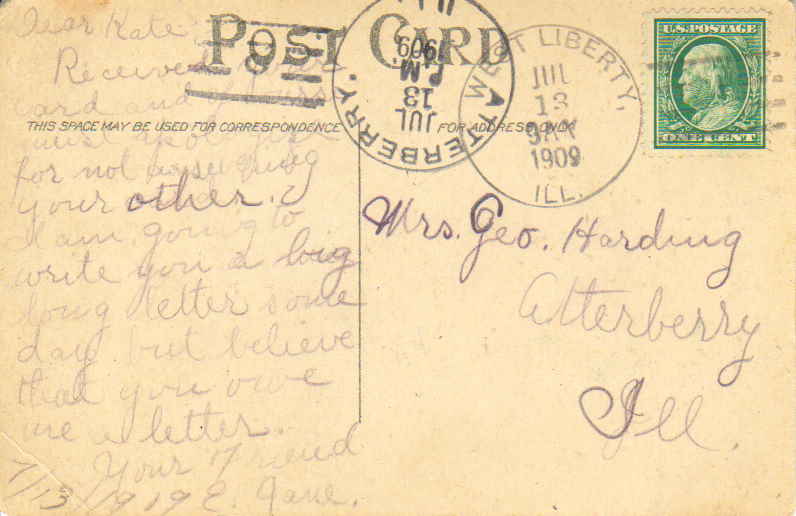 POST CARD
THIS SPACE MAY BE USED FOR CORRESPONDENCE
FOR ADDRESS ONLY
U.S. POSTAGE
ONE CENT
ATTERBERRY.
JUL
13
P.M.
1909
ILL
WEST LIBERTY,
JUL
13
1909
ILL.
Dear Kate
Received your
card and
must
for not
your other.
I am going to
write you a big
long letter some
day but believe
that you owe
me a letter.
Your Friend
7/13/1919 E. Jane.
Mrs. Geo. Harding
Atterberry
Ill.